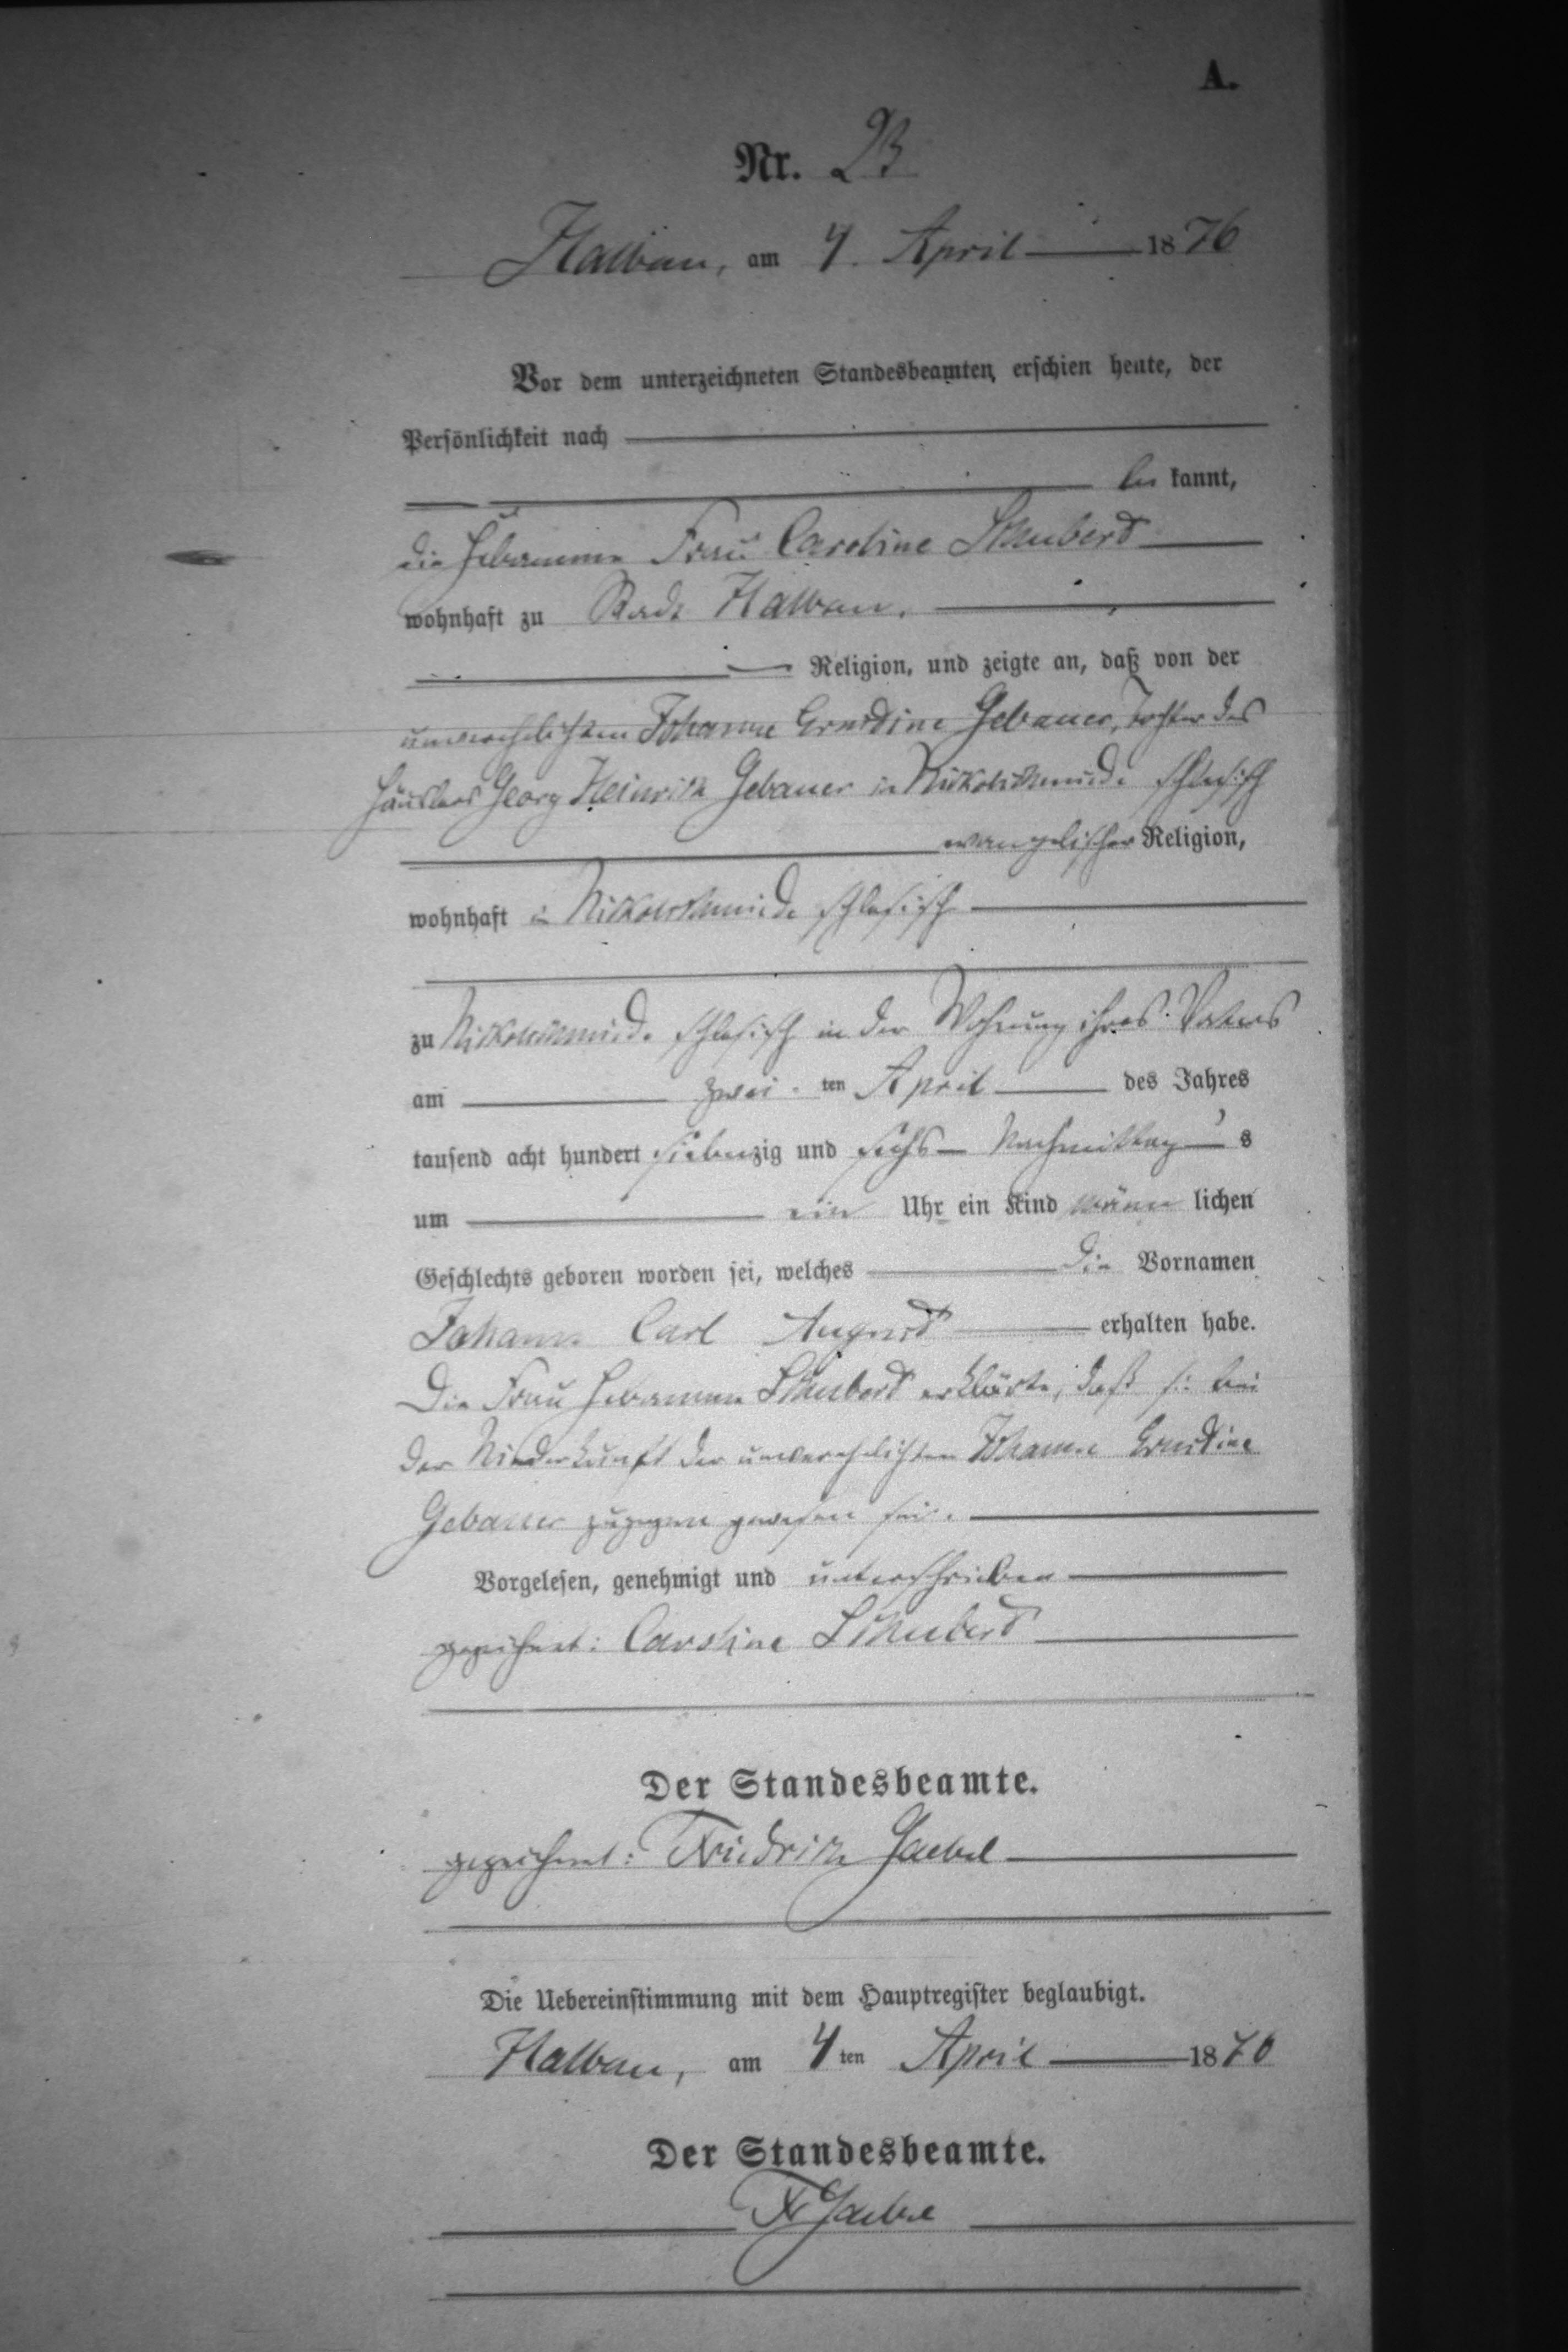 A.
Nr. 23
Halbau, am 4. April 1876
Vor dem unterzeichneten Standesbeamten erschien heute, der
Persönlichkeit nach
be kannt,
die Hebamme Frau Caroline Schubert
wohnhaft zu Stadt Halbau.
Religion, und zeigte an, daß von der
unverehelichten Johanne Ernestine Gebauer, Tochter des
Häuslers Georg Heinrich Gebauer in Nikolschmiede schlesisch
evangelischer Religion,
wohnhaft in Nikolschmiede schlesisch
zu Nikolschmiede schlesisch in der Wohnung ihres Vaters
am zwei ten April des Jahres
tausend acht hundert siebenzig und sechs Nachmittag s
um ein Uhr ein Kind männ lichen
Geschlechts geboren worden sei, welches die Vornamen
Johann Carl August erhalten habe.
Die Frau Hebamme Schubert erklärte, daß sie bei
der Niederkunft der unverehelichten Johanne Ernestine
Gebauer zugegen gewesen sei.
Vorgelesen, genehmigt und unterschrieben
gezeichnet: Caroline Schubert
Der Standesbeamte.
gezeichnet: Friedrich Gaebel
Die Uebereinstimmung mit dem Hauptregister beglaubigt.
Halbau, am 4 ten April 1876
Der Standesbeamte.
Fr Gaebel